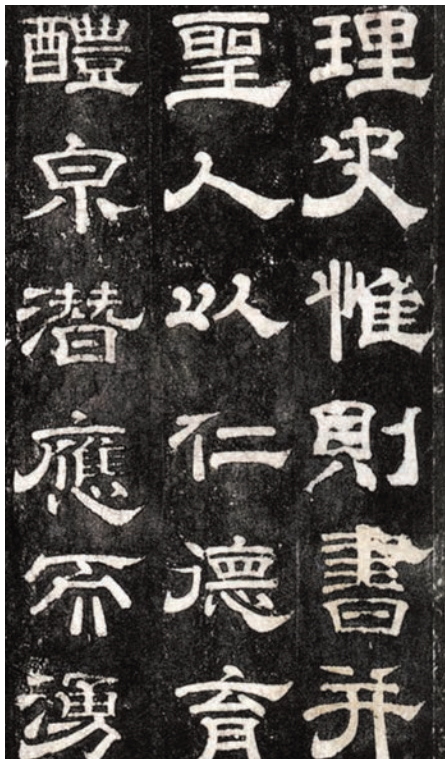 理史惟則書并
聖人以仁德育
醴泉潜應而湧